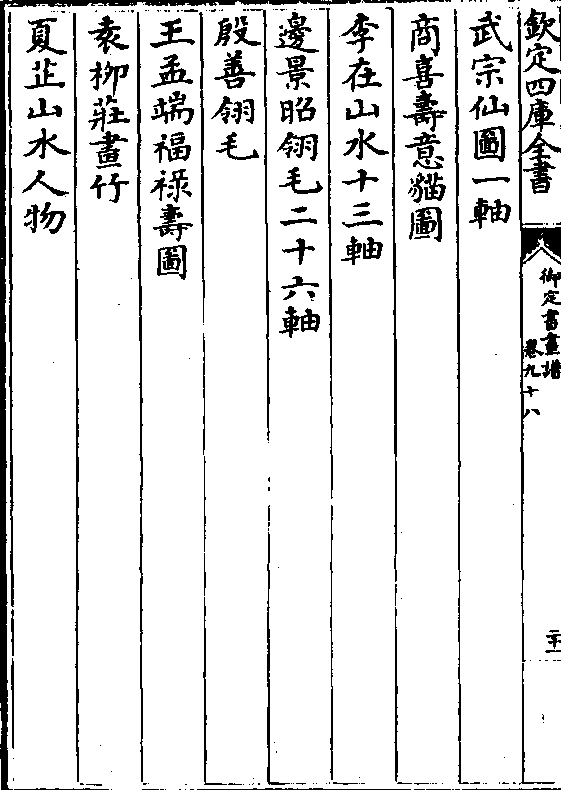 欽定四庫全書
御定書畫譜
卷九十八
二十一
武宗仙圖一軸
商喜壽意貓圖
李在山水十三軸
邊景昭翎毛二十六軸
殷善翎毛
王孟端福祿壽圖
袁柳莊畫竹
夏芷山水人物